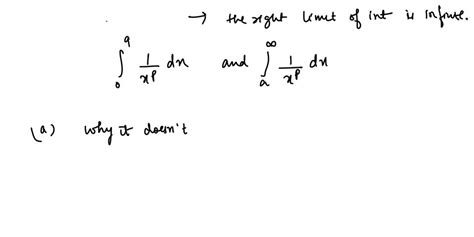 → the right limit of int is infinite.
∫₀^a 1/x^p dx and ∫_a^∞ 1/x^p dx
(a) why it doesn't